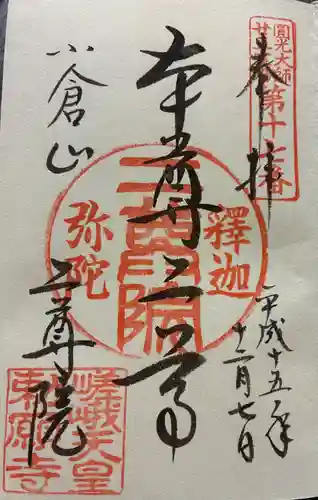 圓光大師
廿五
第十七番
奉拝
平成十五年
十二月七日
本尊二尊
二尊院
釋迦
弥陀
小倉山
二尊院
嵯峨天皇
勅願寺